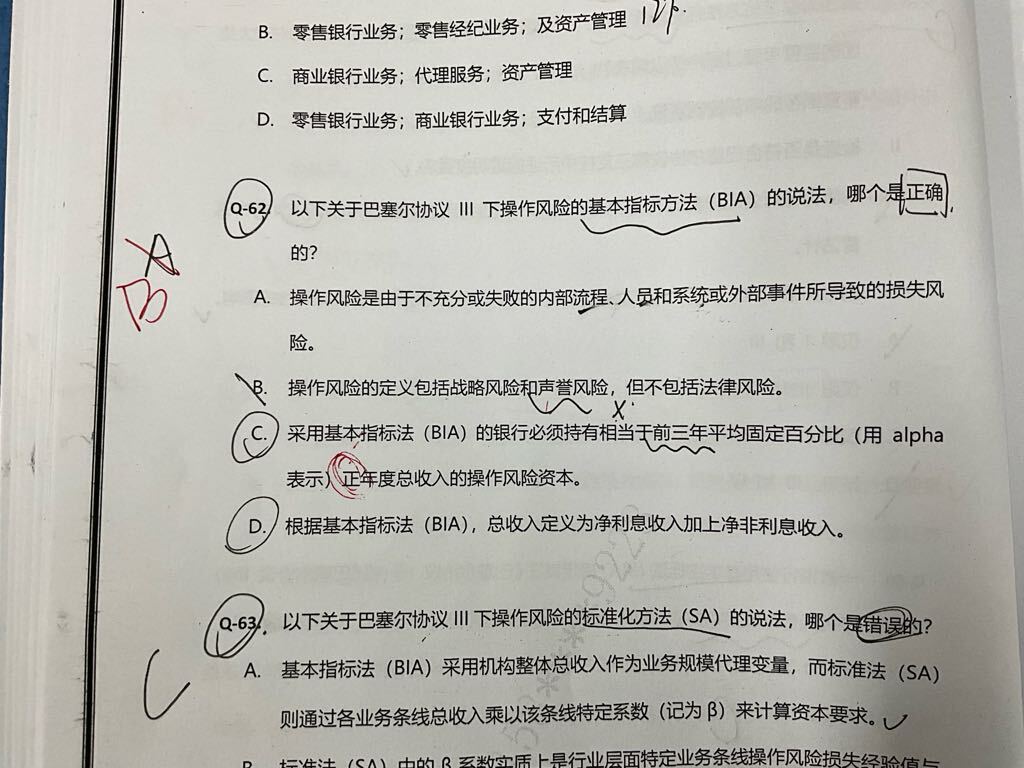 B. 零售银行业务；零售经纪业务；及资产管理
C. 商业银行业务；代理服务；资产管理
D. 零售银行业务；商业银行业务；支付和结算
Q-62. 以下关于巴塞尔协议 III 下操作风险的基本指标方法（BIA）的说法，哪个是正确
的?
A
B
A. 操作风险是由于不充分或失败的内部流程、人员和系统或外部事件所导致的损失风
险。
B. 操作风险的定义包括战略风险和声誉风险，但不包括法律风险。
X
C. 采用基本指标法（BIA）的银行必须持有相当于前三年平均固定百分比（用 alpha
表示）正年度总收入的操作风险资本。
D. 根据基本指标法（BIA），总收入定义为净利息收入加上净非利息收入。
Q-63. 以下关于巴塞尔协议 III 下操作风险的标准化方法（SA）的说法，哪个是错误的?
A. 基本指标法（BIA）采用机构整体总收入作为业务规模代理变量，而标准法（SA）
则通过各业务条线总收入乘以该条线特定系数（记为 β）来计算资本要求。
B. 标准法（SA）中的 β 系数实质上是行业层面特定业务条线操作风险损失经验值与